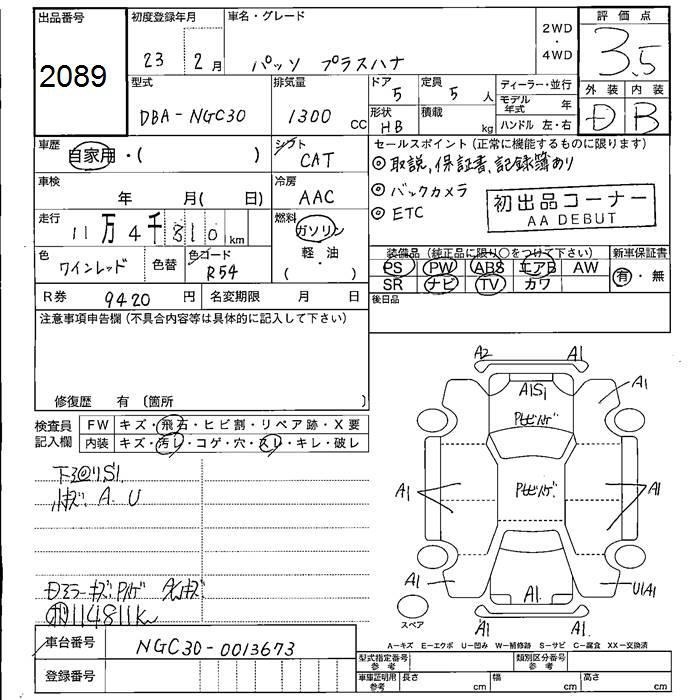 出品番号 初度登録年月 車名・グレード 2WD ・ 4WD 評価点
2089 23 2月 パッソ プラスハナ 3.5
型式 排気量 ドア 定員 ディーラー・並行 外装 内装
DBA-NGC30 1300 CC 5 5人 モデル年式 年 D B
形状 積載 ハンドル 左・右
HB kg
車歴 シフト セールスポイント(正常に機能するものに限ります)
自家用・( ) CAT ◎取説,保証書,記録簿あり
車検 冷房 ◎バックカメラ
年 月( 日) AAC ◎ETC
初出品コーナー
AA DEBUT
走行 燃料
11万4千810km ガソリン
軽・油
( )
色 色替 色コード
ワインレッド R54
装備品(純正品に限り○をつけて下さい) 新車保証書
PS PW ABS エアB AW 有・無
SR ナビ TV カワ
R券 9420円 名変期限 月 日
後日品
注意事項申告欄(不具合内容等は具体的に記入して下さい)
修復歴 有(箇所
検査員記入欄 FW キズ・飛石・ヒビ割・リペア跡・X要
内装 キズ・汚し・コゲ・穴・スレ・キレ・破レ
A2 A1
A1S1 A1
A1 A1
A1 U1A1
A1
A1 A1
スペア
小キズ. A. U
114811km
A=キズ E=エクボ U=凹み W=補修跡 S=サビ C=腐食 XX=交換済
車台番号 NGC30-0013673
型式指定番号 参考 類別区分番号 参考
登録番号
車庫証明用 参考 長さ cm 幅 cm 高さ cm